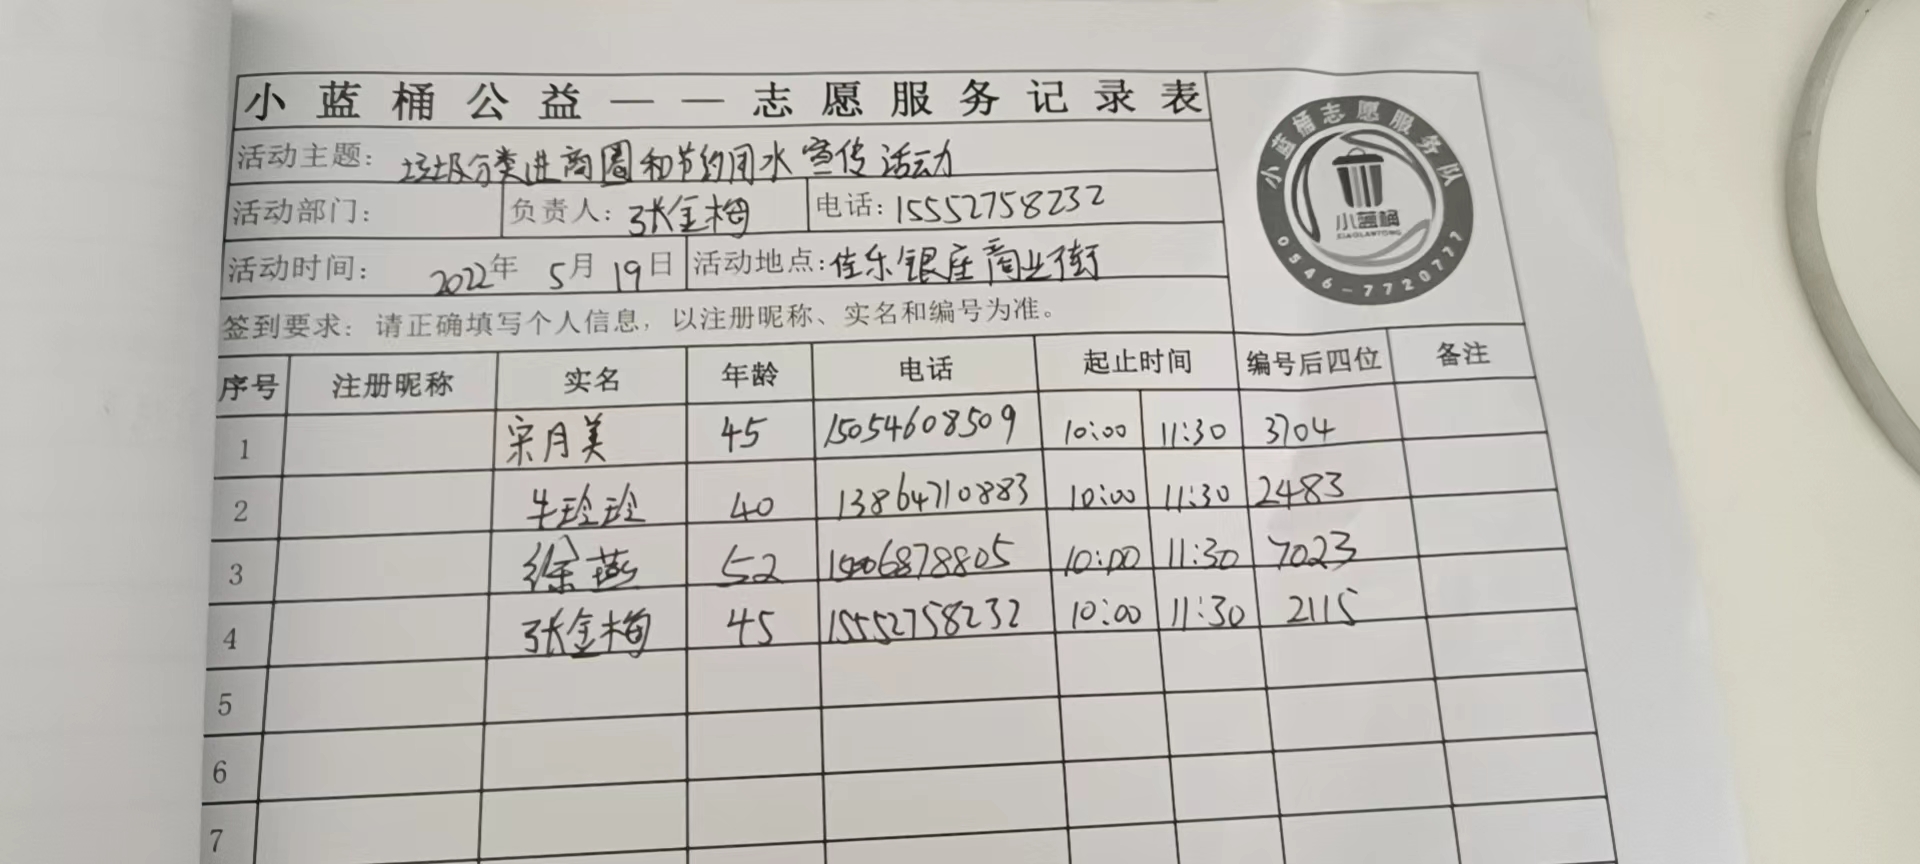 小蓝桶公益——志愿服务记录表
活动主题：垃圾分类进商圈和节约用水宣传活动
活动部门： 负责人：张金梅 电话：15552758232
活动时间： 2022年 5月 19日 活动地点：佳乐银座商业街
签到要求：请正确填写个人信息，以注册昵称、实名和编号为准。
小蓝桶志愿服务队
小蓝桶
XIAOLANTONG
0546-7720777
序号 注册昵称 实名 年龄 电话 起止时间 编号后四位 备注
1 宋月美 45 15054608509 10:00 11:30 3704
2 牛玲玲 40 13864710883 10:00 11:30 2483
3 徐燕 52 10:00 11:30 7023
4 张金梅 45 15552758232 10:00 11:30 2115
5
6
7